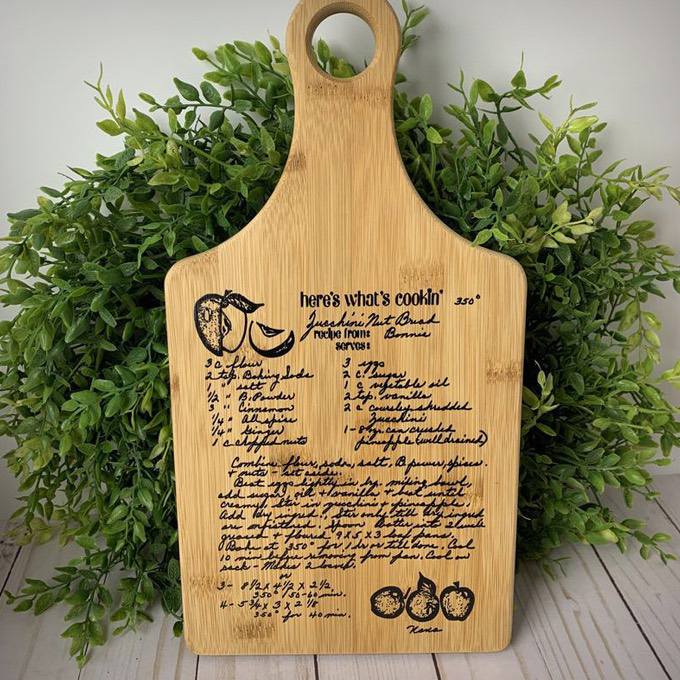 here's what's cookin' 350°
Zucchini Nut Bread
recipe from: Bonnie
serves:
3 c flour
2 tsp. Baking Soda
1 " salt
1/2 " B. Powder
3 " Cinnamon
1/4 " Allspice
1/4 " Ginger
1 c chopped nuts
3 eggs
2 c sugar
1 c vegetable oil
2 tsp. vanilla
2 c coursley shredded
Zucchini
1 - 8 oz. can crushed
pineapple (well drained)
Combine flour, soda, salt, B. power, spices.
+ nuts - set aside.
Beat eggs lightly in lrg. mixing bowl,
add sugar, oil + vanilla + beat until
creamy. Stir in zucchini + pineapple.
Add dry ingred. Stir only till dry ingred
are moistened. Spoon batter into 2 well
greased + floured 9 x 5 x 3 loaf pans.
Bake at 350° for 1 hr or till done. Cool
10 min before removing from pan. Cool on
rack - Makes 2 loaves.
or
3 - 8 1/2 x 4 1/2 x 2 1/2
350° / 50-60 min.
4 - 5 3/4 x 3 x 2 1/8
350° for 40 min.
Nana